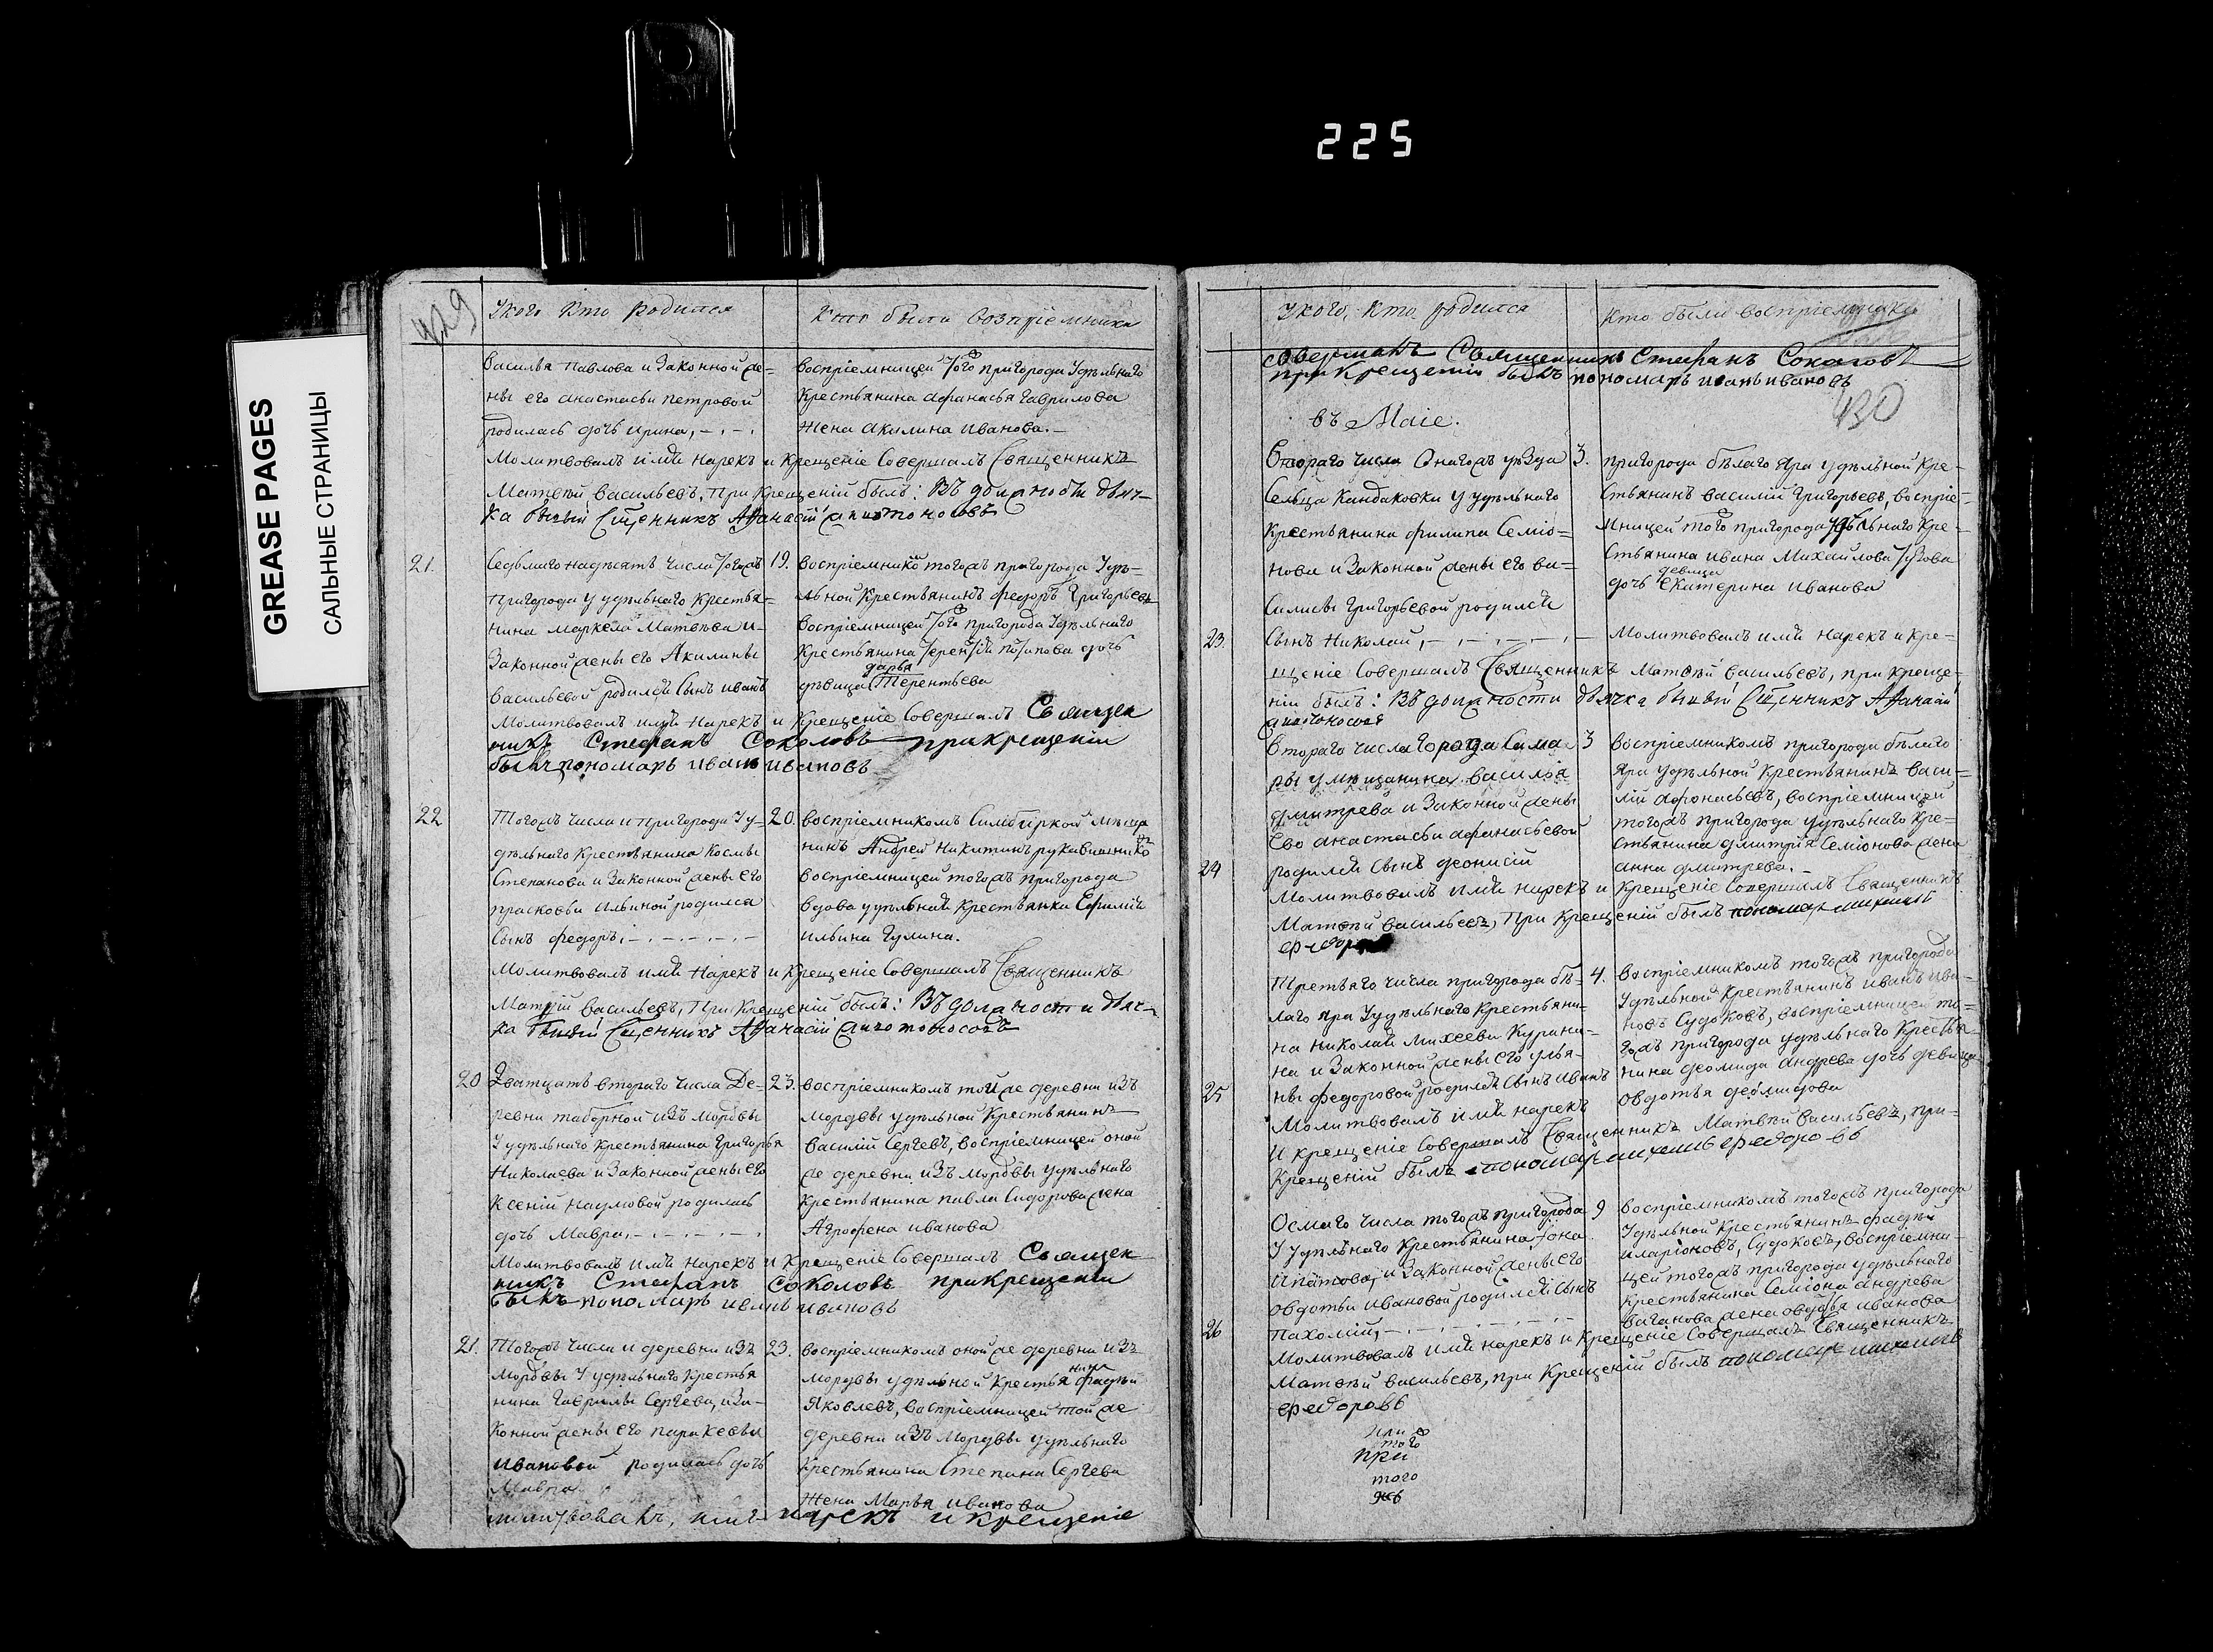 225
GREASE PAGES
САЛЬНЫЕ СТРАНИЦЫ
429
Укого Кто родился
Кто были возпріемники
Василья Павлова и законной же-
ны его анастасьи Петровой
родилась дочь ирина,
воспріемницей того пригорода Удѣльнаго
Крестьянина афанасья Гаврилова
жена акилина иванова.
Молитвовалъ имя нарекъ и Крещеніе Совершалъ Священникъ
Матвѣй Васильевъ, При Крещеній былъ: Въ должности дьяч-
ка бывый Сщенникъ Афанасій
21.
Седьмаго надѣсять числа тогожъ
Пригорода у удѣльнаго Крестья-
нина Маркела Матвѣева и
Законной жены его Акилины
Васильевой родился Сынъ иванъ
19.
Воспріемникъ тогожъ пригорода Удѣ-
льной Крестьянинъ Федоръ Григорьевъ
Воспріемницей того пригорода Удѣльнаго
Крестьянина дочь
дарья
дѣвица Терентьева
Молитвовалъ имя нарекъ и Крещеніе Совершалъ Священ
никъ Стефанъ Соколовъ при крещеніи
былъ пономарь иванъ ивановъ
22
Тогожъ числа и пригорода У у-
дѣльнаго Крестьянина Космы
Степанова и Законной жены его
прасковьи ильиной родился
Сынъ федоръ
20.
воспріемникомъ Симбирской мѣща
нинъ Андрей Никитинъ рукавишнико
воспріемницей тогожъ пригорода
вдова удѣльная Крестьянка Ефимія
ильина Гулина.
Молитвовалъ имя нарекъ и Крещеніе Совершалъ Священникъ
Матвій Васильевъ, При Крещеній былъ: Въ должности дьяч-
ка бывый Сщенникъ Афанасій
20
Дватцать втораго числа Де-
ревни таборной изъ мордвы
У удѣльнаго Крестьянина Григорья
Николаева и Законной жены его
Ксеній Наумовой родилась
дочь Мавра,
23.
воспріемникомъ той же деревни изъ
мордвы удѣльной Крестьянинъ
Василій Сергѣевъ, воспріемницей оной
же деревни изъ мордвы удѣльнаго
Крестьянина павла Сидорова жена
Агрофена иванова
Молитвовалъ имя нарекъ и Крещеніе Совершалъ Священ
никъ Стефанъ Соколовъ при крещеніи
былъ пономарь иванъ ивановъ
21.
Тогожъ числа и деревни изъ
Мордвы У удѣльнаго Крестья
нина Гаврилы Сергѣева, и за-
конной жены его параксевы
ивановой родилась дочь
Мавра
23.
воспріемникомъ оной же деревни изъ
мордвы удѣльной Крестьянинъ фадѣй
Яковлевъ, воспріемницей той же
деревни изъ мордвы удѣльнаго
Крестьянина Степана Сергѣева
жена Марья иванова
молитвовалъ, имя нарекъ и крещеніе
Укого, Кто родился
Кто были воспріемники
совершалъ Священникъ Стефанъ Соколовъ
при крещеніи былъ пономарь иванъ ивановъ
430
въ Маіе.
Втораго числа Онагожъ уѣзда
Сельца Кандаковки у удѣльнаго
Крестьянина филипа Семіо-
нова и Законной жены его ва-
силисы Григорьевой родился
Сынъ Николай,
3.
пригорода бѣлаго Яра удѣльной Кре-
стьянинъ василій Григорьевъ, воспріе-
мницей того пригорода удѣльнаго Кре-
стьянина ивана Михайлова
девица
дочь екатерина иванова
23.
Молитвовалъ имя нарекъ и Кре-
щеніе Совершалъ Священникъ Матвѣй васильевъ, при Креще-
ніи былъ: Въ должности дьячка бывый Сщенникъ Афанасій
Втораго числа города Сама
ры у мѣщанина василія
дмитрева и Законной жены
Его анастасьи афанасьевой
родился Сынъ деонисій
3
воспріемникомъ пригорода бѣлаго
Яра удѣльной Крестьянинъ васи-
лій афонасьевъ, воспріемницей
тогожъ пригорода удѣльнаго Кре-
стьянина дмитрія Семіонова жена
анна дмитрева.
24
Молитвовалъ имя нарекъ и Крещеніе Совершалъ Священникъ
Матвѣй васильевъ, При Крещеній былъ пономарь
Третьяго числа пригорода бѣ-
лаго яра У удѣльнаго Крестьяни-
на Николая михеева Курани-
на и Законной жены его улья-
ны федоровой родился Сынъ иванъ
4.
воспріемникомъ тогожъ пригорода
Удѣльной Крестьянинъ иванъ ива-
новъ Судоковъ, воспріемницей то-
гожъ пригорода удѣльнаго Крестья-
нина деомида андреева дочь девица
овдотья деомидова
25
Молитвовалъ имя нарекъ
и крещеніе Совершалъ Священникъ Матвѣй васильевъ, при-
Крещеній былъ пономарь федоровъ
Осмаго числа тогожъ пригорода
У удѣльнаго Крестьянина іона
ипатова, и Законной жены его
овдотьи ивановой родился Сынъ
Пахомій,
9
воспріемникомъ тогожъ пригорода
Удѣльной Крестьянинъ фадѣй
иларіоновъ, Судоковъ, воспріемни-
цей тогожъ пригорода удѣльнаго
Крестьянина Семіона андрева
ваганова жена овдотья иванова
26
Молитвовалъ имя нарекъ и Крещеніе Совершалъ Священникъ
Матвѣй васильевъ, при Крещеній былъ пономарь
федоровъ
при
того
при
того